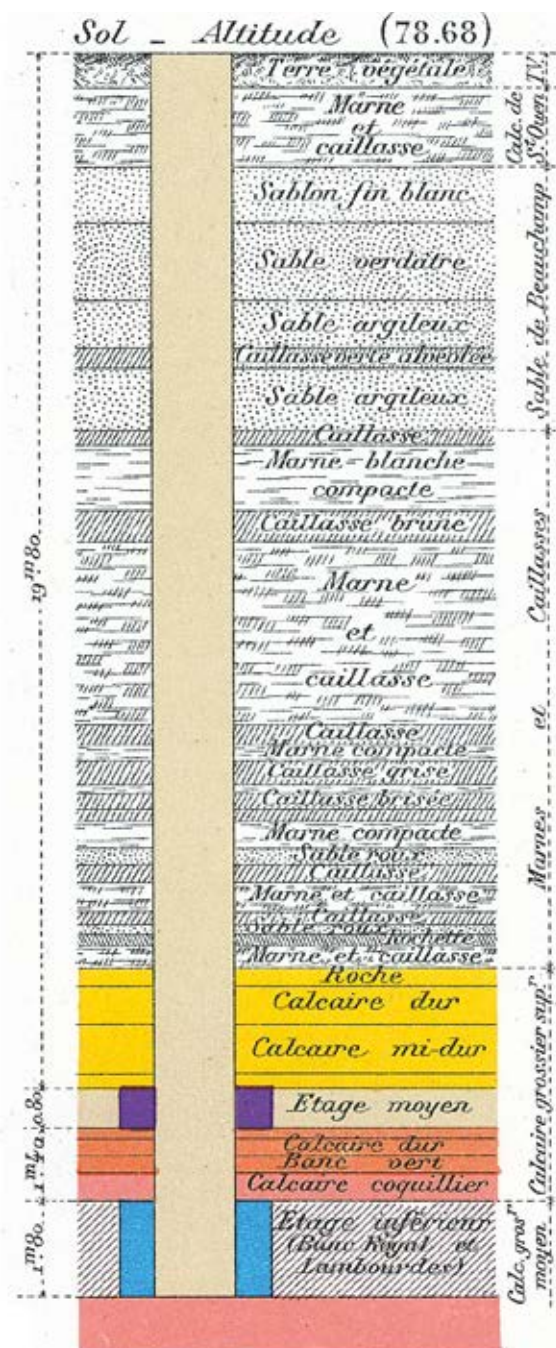 Sol - Altitude (78.68)
Terre végétale
Marne
et
caillasse
Sablon fin blanc
Sable verdâtre
Sable argileux
Caillasse verte alvéolée
Sable argileux
Caillasse
Marne-blanche
compacte
Caillasse brune
Marne
et
caillasse
Caillasse
Marne compacte
Caillasse grise
Caillasse brisée
Marne compacte
Sable roux
Caillasse
Marne et caillasse
Caillasse
Sable roux
Rochette
Marne et caillasse
Roche
Calcaire dur
Calcaire mi-dur
Etage moyen
Calcaire dur
Banc vert
Calcaire coquillier
Etage inférieur
(Banc Royal et
Lambourdes)
T.V.
Calc. de
St Ouen
Sable de Beauchamp
Marnes et Caillasses
Calcaire grossier supr
Calc. grosr
moyen
19m80